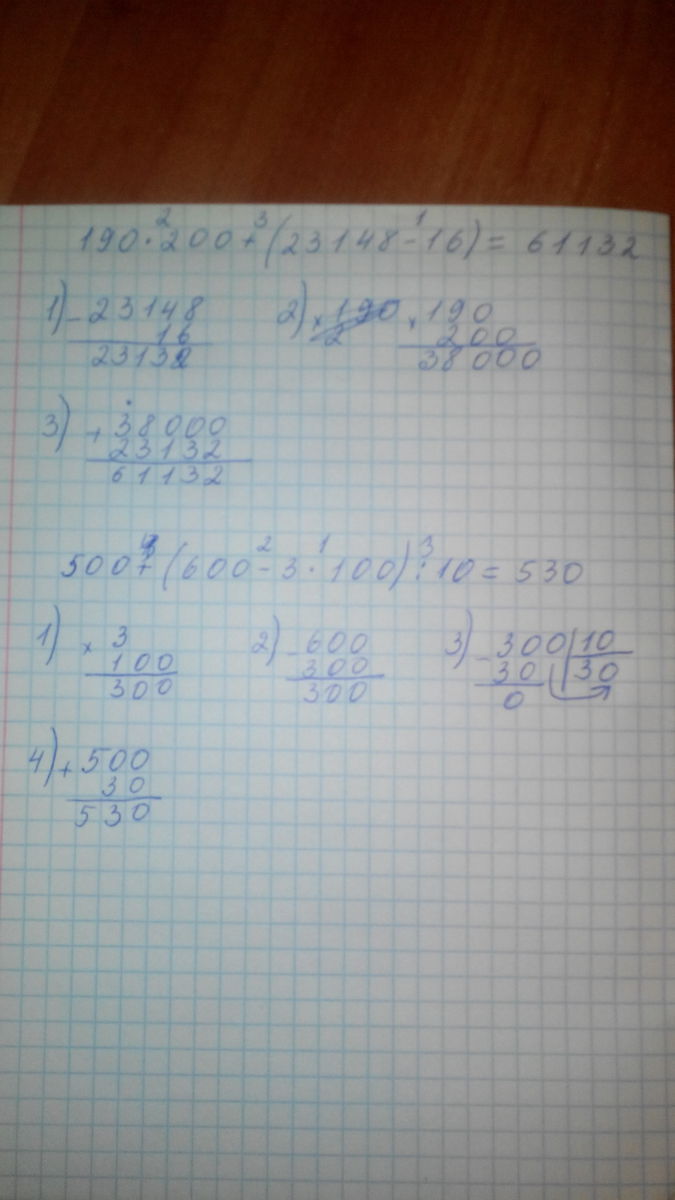 190 · 200 + (23148 - 16) = 61132
2 3 1
1) - 23148
16
23132
2) × 190
2
× 190
200
38000
3) + 38000
23132
61132
500 + (600 - 3 · 100) : 10 = 530
4 2 1 3
1) × 3
100
300
2) - 600
300
300
3) - 300 | 10
30 30
0
4) + 500
30
530